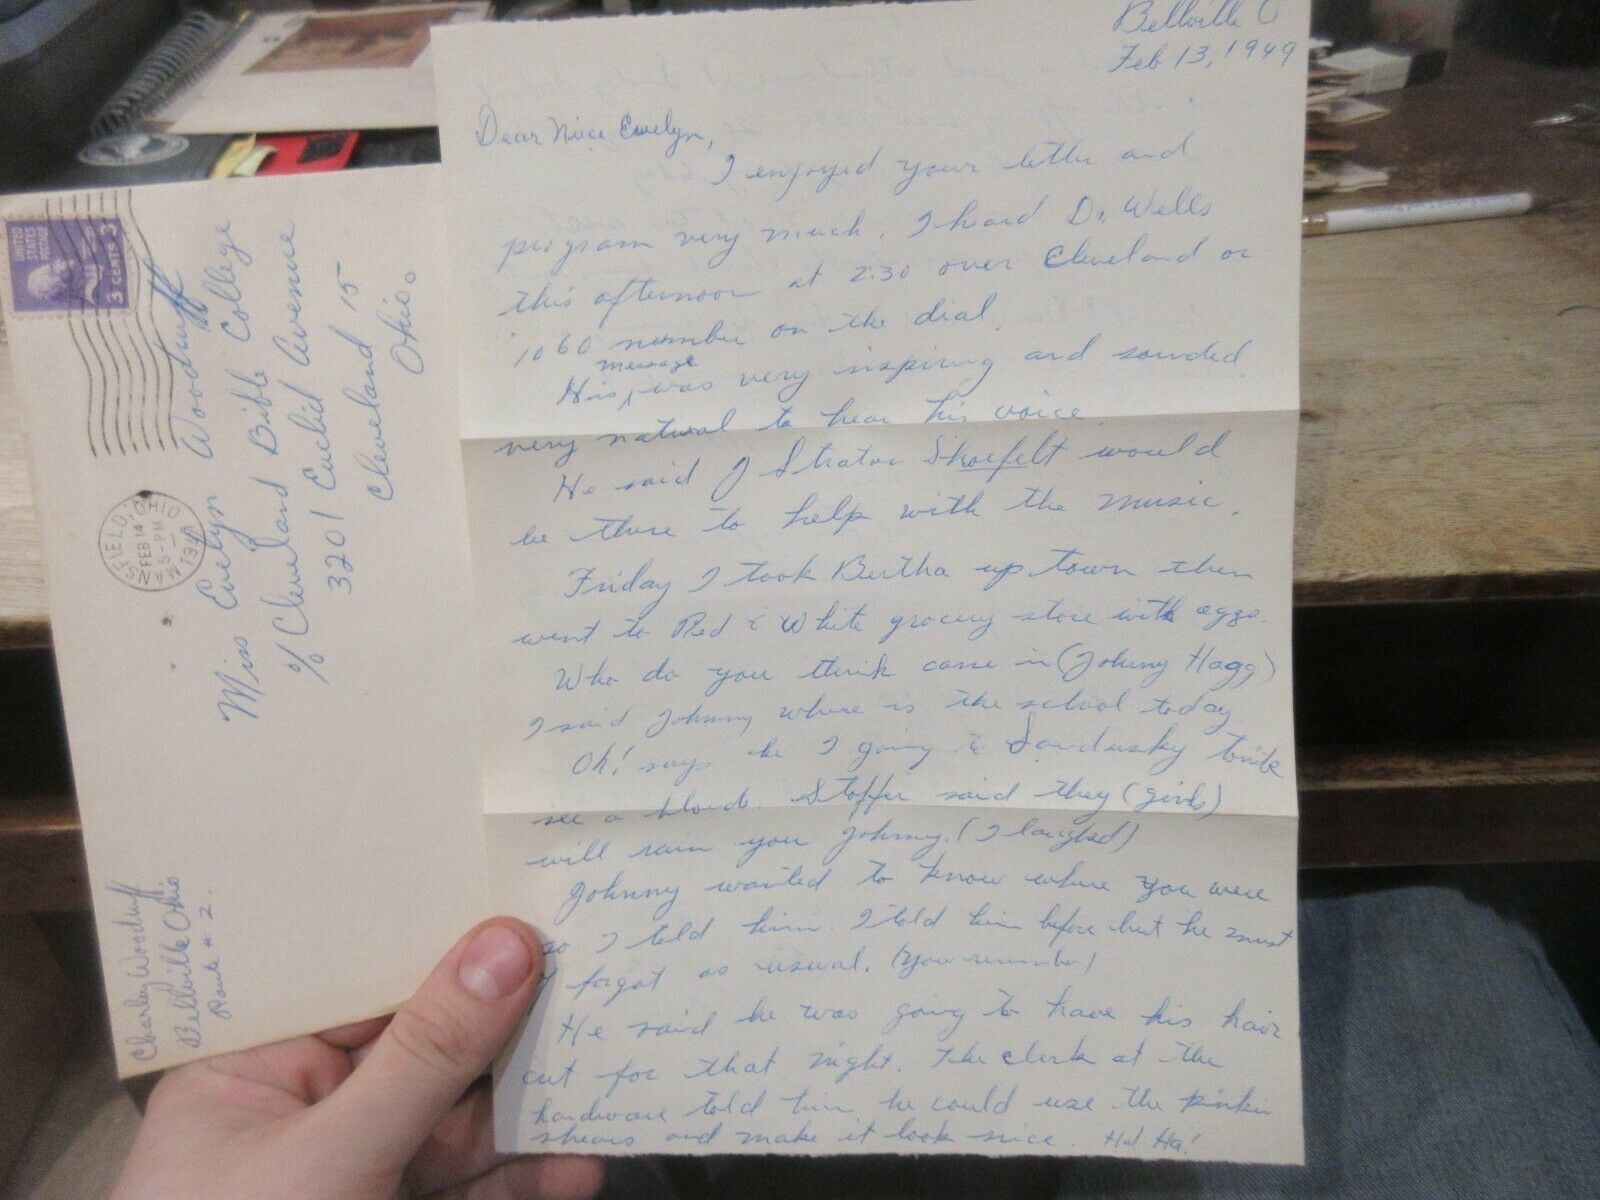 Bellville O
Feb 13, 1949
Dear Niece Evelyn,
I enjoyed your letter and
program very much. I heard Dr. Wells
this afternoon at 2:30 over Cleveland or
1060 number on the dial.
message
His was very inspiring and sounded
very natural to hear his voice.
He said J Strator Shoefelt would
be there to help with the music.
Friday I took Bertha up town then
went to Red & White grocery store with eggs.
Who do you think came in (Johnny Hagg)
I said Johnny where is the school today
Oh! says he I going to Sandusky tonite
see a blond. Stoffer said they (girls)
will ruin you Johnny. (I laughed)
Johnny wanted to know where you were
so I told him. I told him before but he must
of forgot as usual. (You remember)
He said he was going to have his hair
cut for that night. The clerk at the
hardware told him he could use the pinkin
shears and make it look nice. Ha! Ha!
UNITED STATES POSTAGE
3 CENTS 3
MANSFIELD, OHIO
FEB 14
5 - PM
1949
Miss Evelyn Woodruff
% Cleveland Bible College
3201 Euclid Avenue
Cleveland 15
Ohio.
Charley Woodruff
Bellville Ohio
Route # 2.